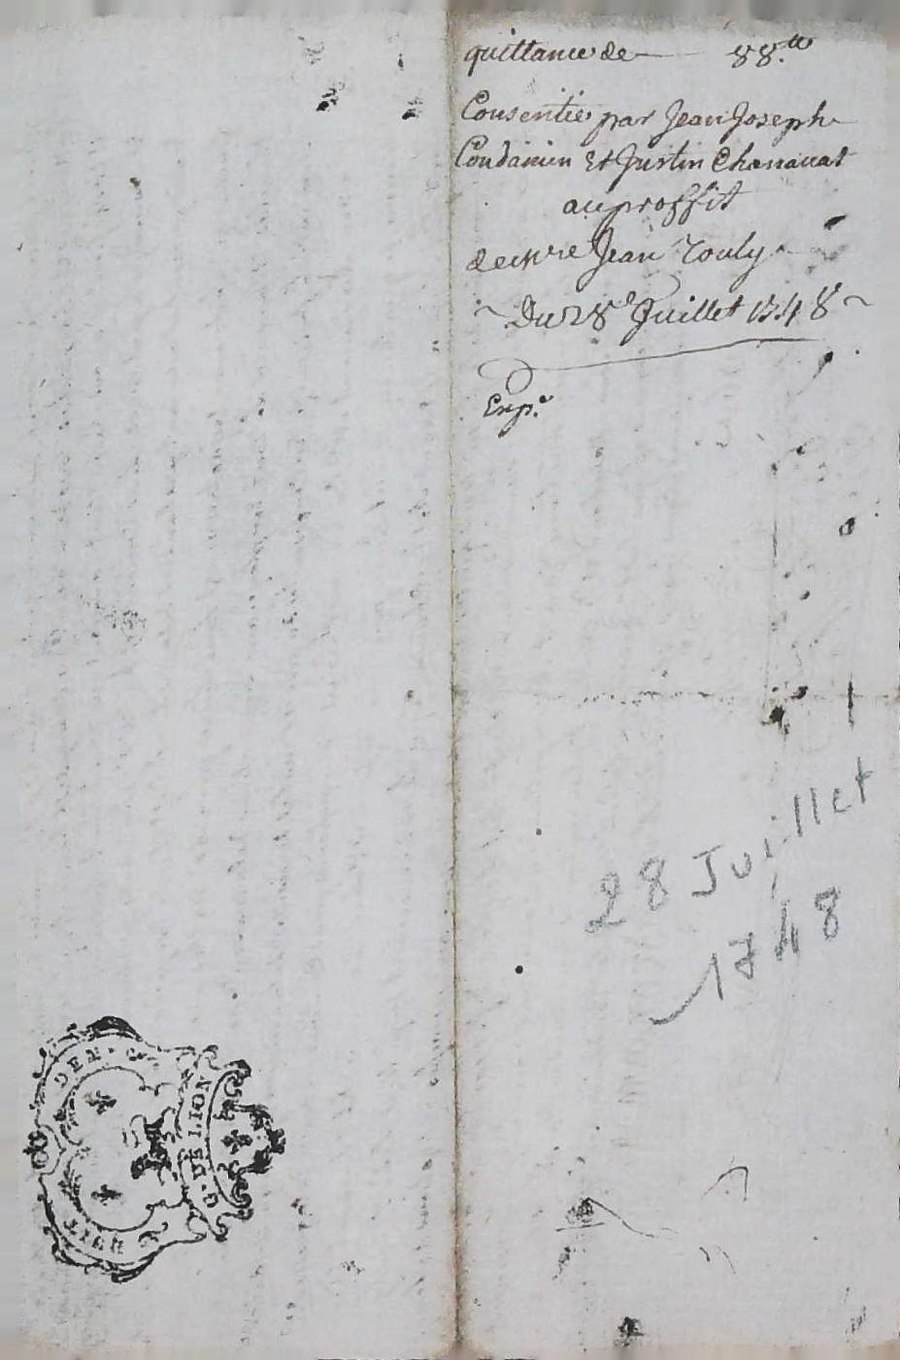 quittance de 88.tt
Consentie par Jean Joseph
Condamin Et Justin Chanauat
au proffit
de mre Jean Couly
Du 28e Juillet 1748
Exp.e
28 Juillet
1748
G. DE LION
DEN.
HUIT